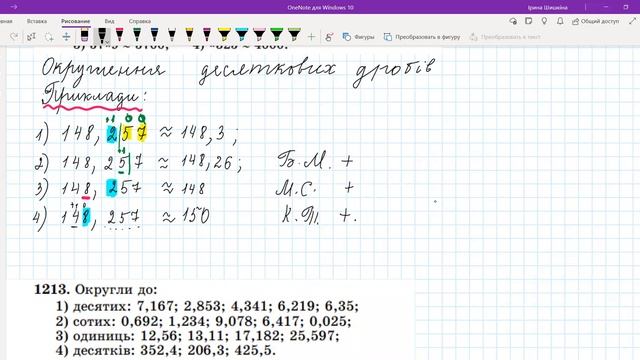 OneNote для Windows 10
Ірина Шишкіна
Рисование
Преобразовать в фигуры
Преобразовать в текст
Общий доступ
Округлення десяткових дробів
Приклади:
1) 148,257 ≈ 148,3;
2) 148,257 ≈ 148,26; Б.М. +
3) 148,257 ≈ 148 М.С. +
4) 148,257 ≈ 150 К.Т. +.
1213. Округли до:
1) десятих: 7,167; 2,853; 4,341; 6,219; 6,35;
2) сотих: 0,692; 1,234; 9,078; 6,417; 0,025;
3) одиниць: 12,56; 13,11; 17,182; 25,597;
4) десятків: 352,4; 206,3; 425,5.